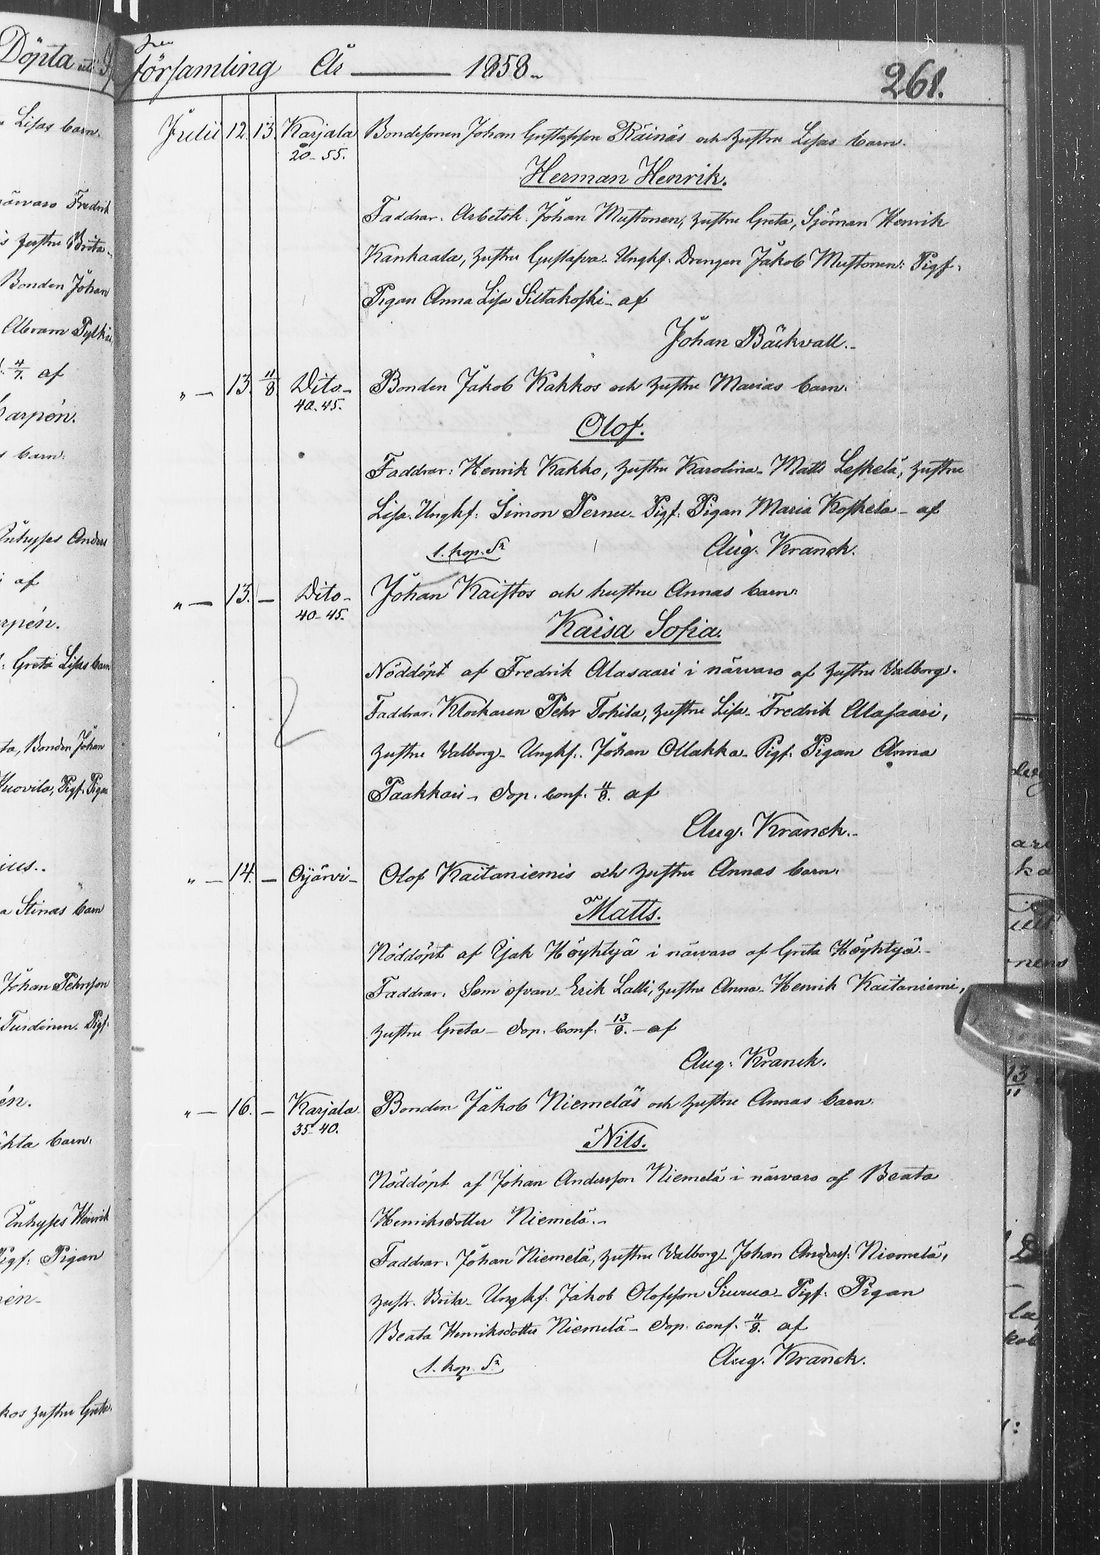 Döpta
församling År 1858.
261.
Julii 12. 13. Karjala Bondesonen Johan Gustafsson Räinäs och hustru Lisas barn.
20-55.
Herman Henrik.
Faddrar. Arbetsk. Johan Mustonen, hustru Greta, Sjöman Henrik
Kankaala, hustru Gustafva. Ungkf. Drengen Jakob Mustonen. Pigf.
Pigan Anna Lisa Siltakoski - af
Johan Bäckvall.
"— 13. 11/8. Dito- Bonden Jakob Kakkos och hustru Marias barn.
40-45.
Olof.
Faddrar: Henrik Kakko, hustru Karolina - Matts Leskelä, hustru
Lisa. Ungkf. Simon Pernu - Pigf. Pigan Maria Koskela - af
1. kop. Sr Aug. Kranck.
"— 13. — Dito- Johan Kaistos och hustru Annas barn.
40-45.
Kaisa Sofia.
Nöddöpt af Fredrik Alasaari i närvaro af hustru Valborg.
Faddrar. Klockaren Pehr Tokila, hustru Lisa - Fredrik Alasaari,
hustru Valborg - Ungkf. Johan Ollakka - Pigf. Pigan Anna
Paakkari - Dop. conf. 11/8. af
Aug. Kranck.
"— 14. — Oijärvi- Olof Kaitaniemis och hustru Annas barn.
Matts.
Nöddöpt af Isak Höyhtyä i närvaro af Greta Höyhtyä.
Faddrar. Som ofvan - Erik Lalli, hustru Anna - Henrik Kaitaniemi,
hustru Greta - Dop. conf. 13/8. - af
Aug. Kranck.
"— 16. — Karjala Bonden Jakob Niemeläs och hustru Annas barn
35-40.
Nils.
Nöddöpt af Johan Andersson Niemelä i närvaro af Beata
Henriksdotter Niemelä.
Faddrar. Johan Niemelä, hustru Valborg - Johan Anders. Niemelä,
hustr. Brita - Ungkf. Jakob Olofsson Siurua - Pigf. Pigan
Beata Henriksdotter Niemelä - Dop. conf. 11/8. af
1. kop. Sr Aug. Kranck.